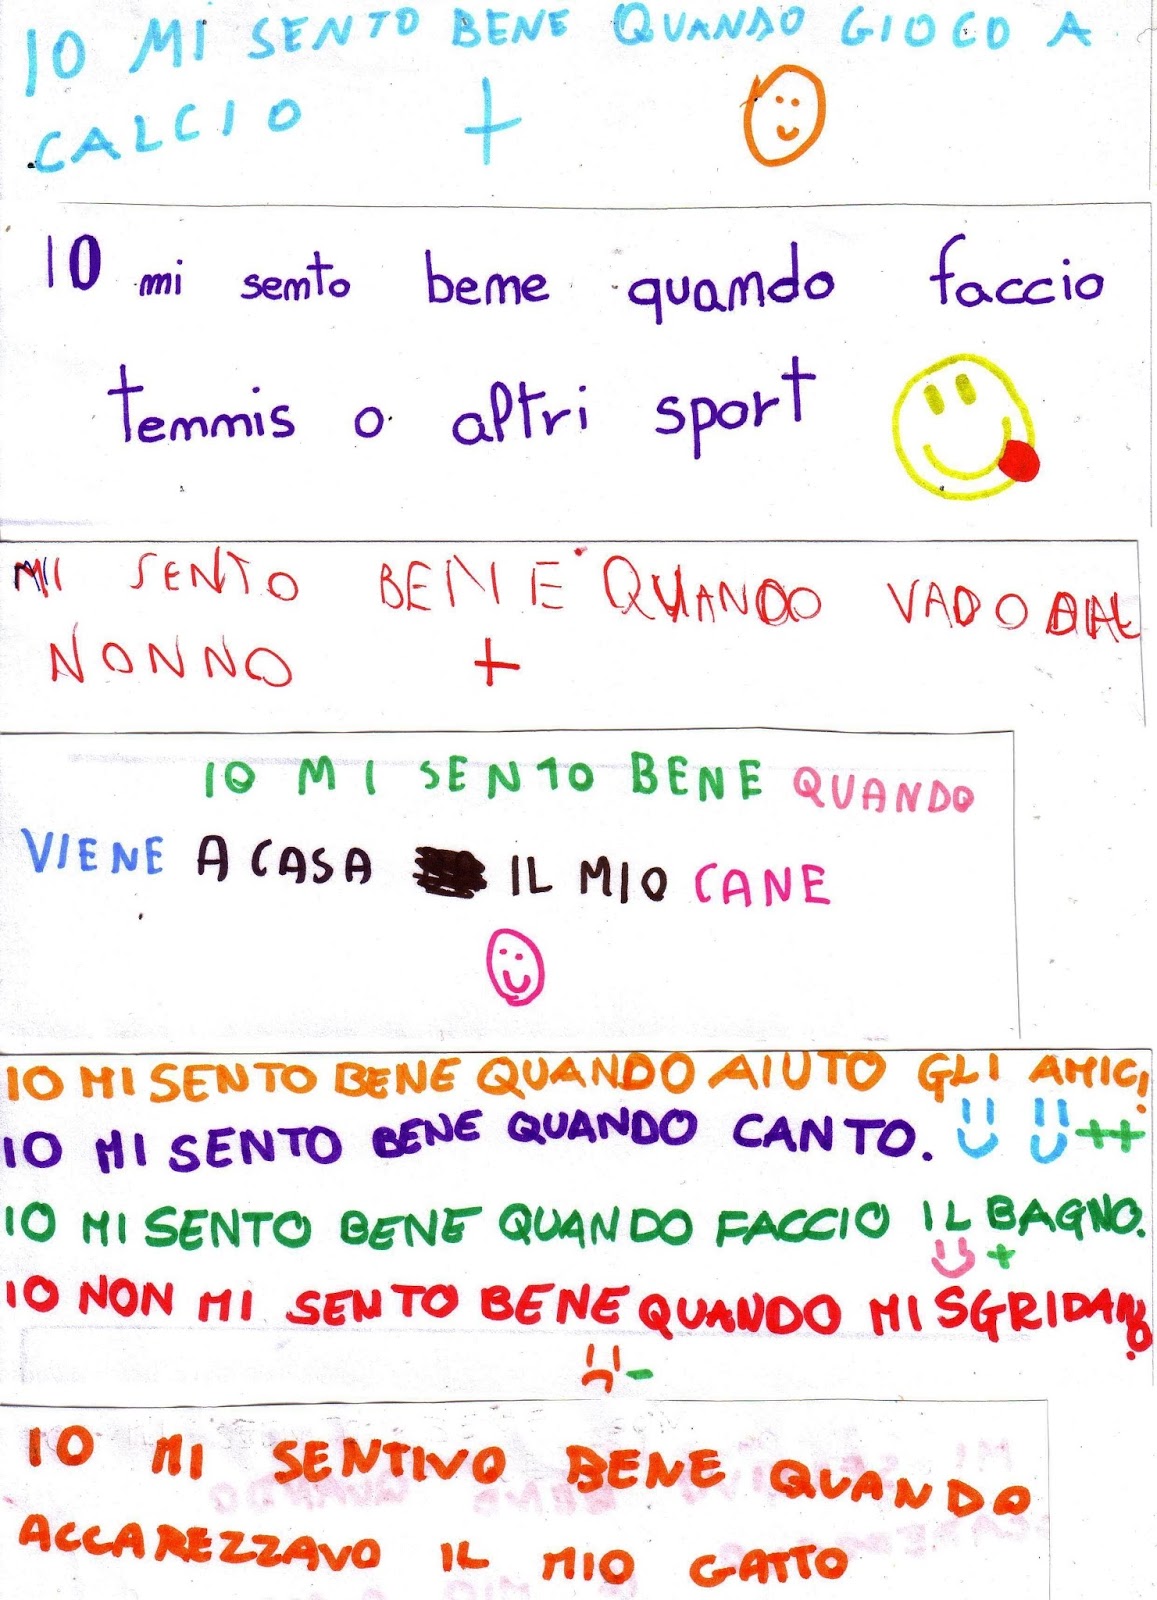 IO MI SENTO BENE QUANDO GIOCO A
CALCIO +
IO mi sento bene quando faccio
tennis o altri sport
MI SENTO BENE QUANDO VADO DAL
NONNO +
IO MI SENTO BENE QUANDO
VIENE A CASA IL MIO CANE
IO MI SENTO BENE QUANDO AIUTO GLI AMICI.
IO MI SENTO BENE QUANDO CANTO. ++
IO MI SENTO BENE QUANDO FACCIO IL BAGNO.
+
IO NON MI SENTO BENE QUANDO MI SGRIDANO.
-
IO MI SENTIVO BENE QUANDO
ACCAREZZAVO IL MIO GATTO